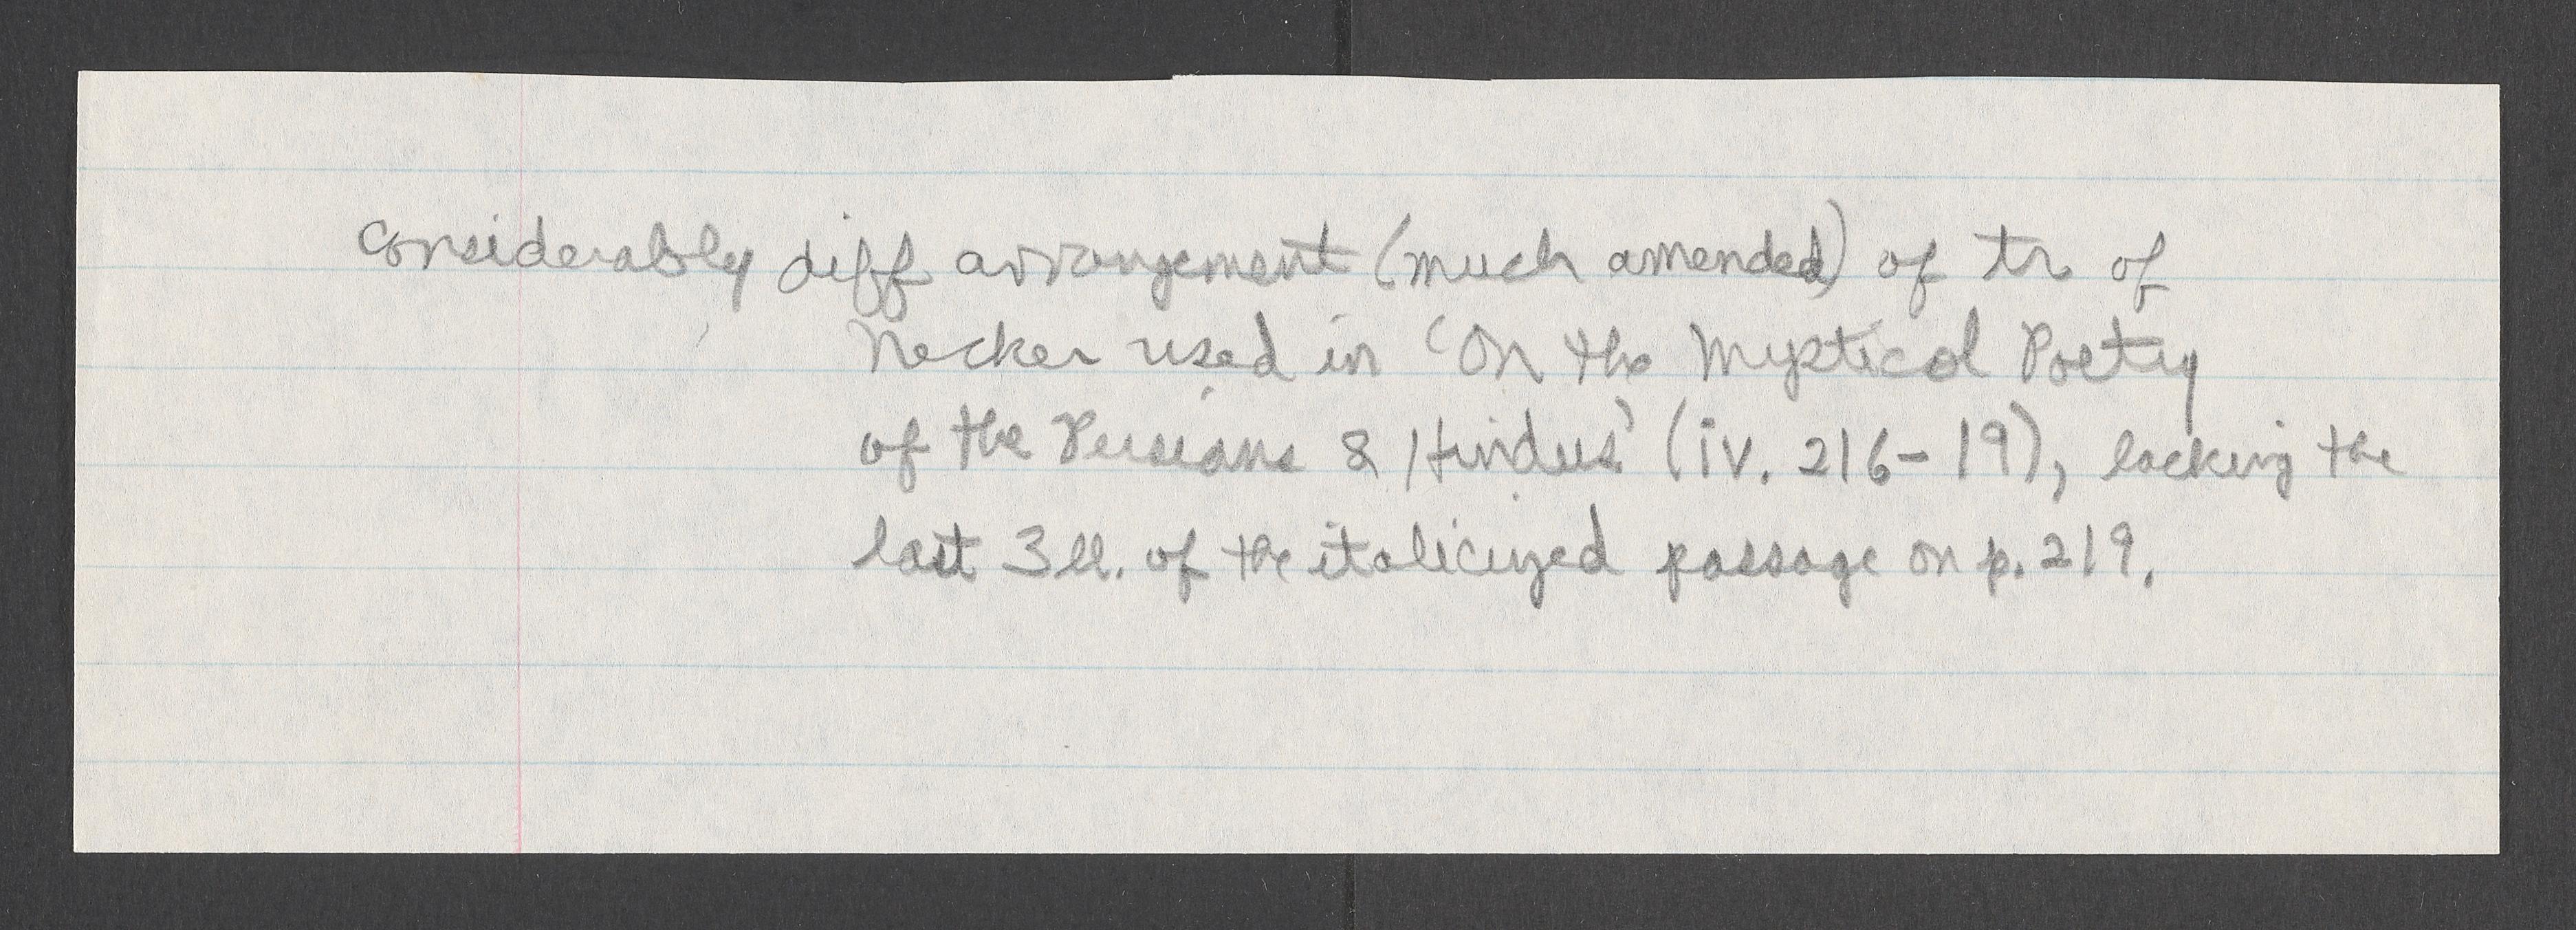 considerably diff arrangement (much amended) of tr of
Necker used in 'On the Mystical Poetry
of the Persians & Hindus' (iv. 216-19), lacking the
last 3 ll. of the italicized passage on p. 219.